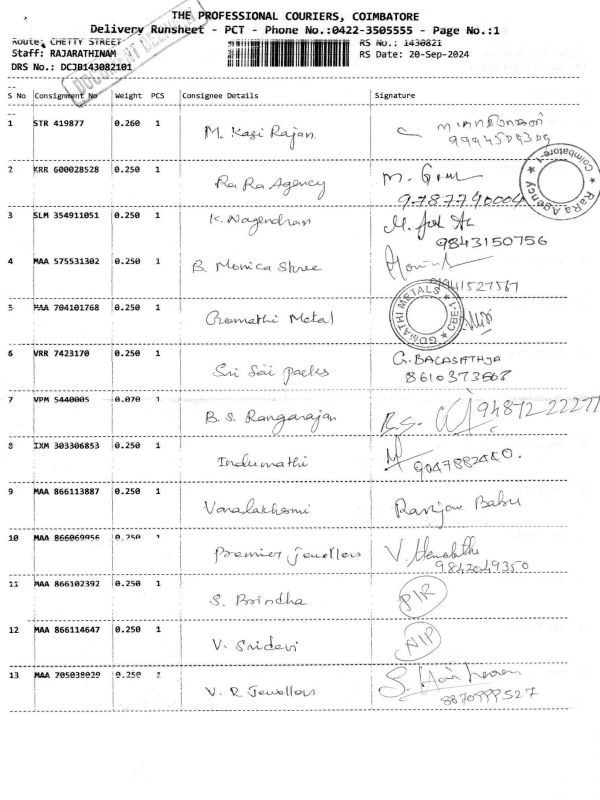 THE PROFESSIONAL COURIERS, COIMBATORE
Delivery Runsheet - PCT - Phone No.:0422-3505555 - Page No.:1
Route: CHETTY STREET
RS No.: 1430821
Staff: RAJARATHINAM
RS Date: 20-Sep-2024
DRS No.: DCJB143082101
S No Consignment No Weight PCS Consignee Details Signature
1 STR 419877 0.260 1 M. Kasi Rajan
2 KRR 600028528 0.250 1 Ra Ra Agency
9787790004
RaRa Agency ★ Coimbatore-1 ★
3 SLM 354911051 0.250 1 K. Nagendran
9843150756
4 MAA 575531302 0.250 1 B. Monica Shree
5 MAA 704101768 0.250 1 Gomathi Metal
GOMATHI METALS ★ CBE-1 ★
6 VRR 7423170 0.250 1 Sri Sai packs G. BALASATHYA
8610373568
7 VPM 5440005 0.070 1 B. S. Rangarajan R.S.
9487222277
8 IXM 303306853 0.250 1 Indumathi
9047882480.
9 MAA 866113887 0.250 1 Varalakshmi Ranjan Babu
10 MAA 866069956 0.250 1 Premier Jewellers V. Hemalatha
9842049350
11 MAA 866102392 0.250 1 S. Brindha
12 MAA 866114647 0.250 1 V. Sridevi NIP
13 MAA 705039029 0.250 V. R Jewellers
8870999527